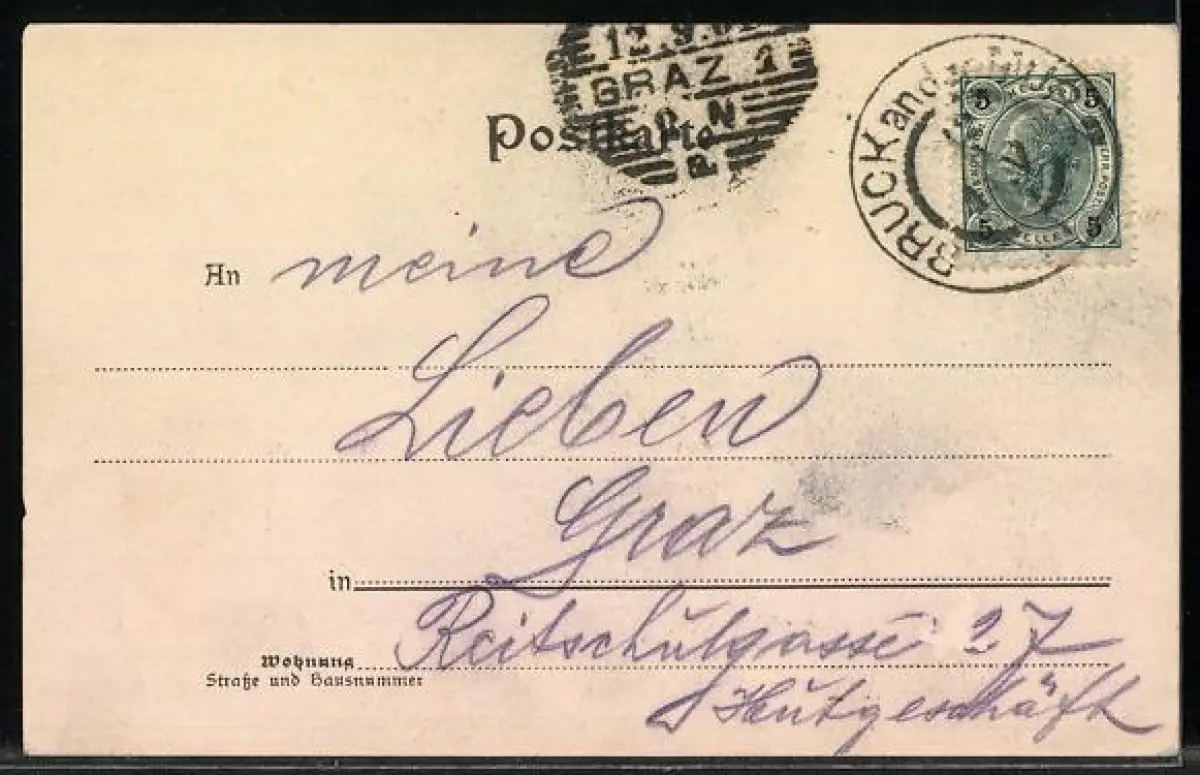 12.9.01
GRAZ 1
Postkarte
BRUCK an der Mur
5 5
5 5
An meine
Lieben
Graz
in
Reitschulgasse 27
Wohnung
Straße und Hausnummer
"Hutgeschäft